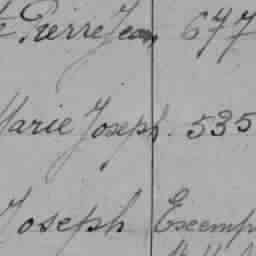 Pierre Jean 677
Marie Joseph. 535
Joseph Exemp